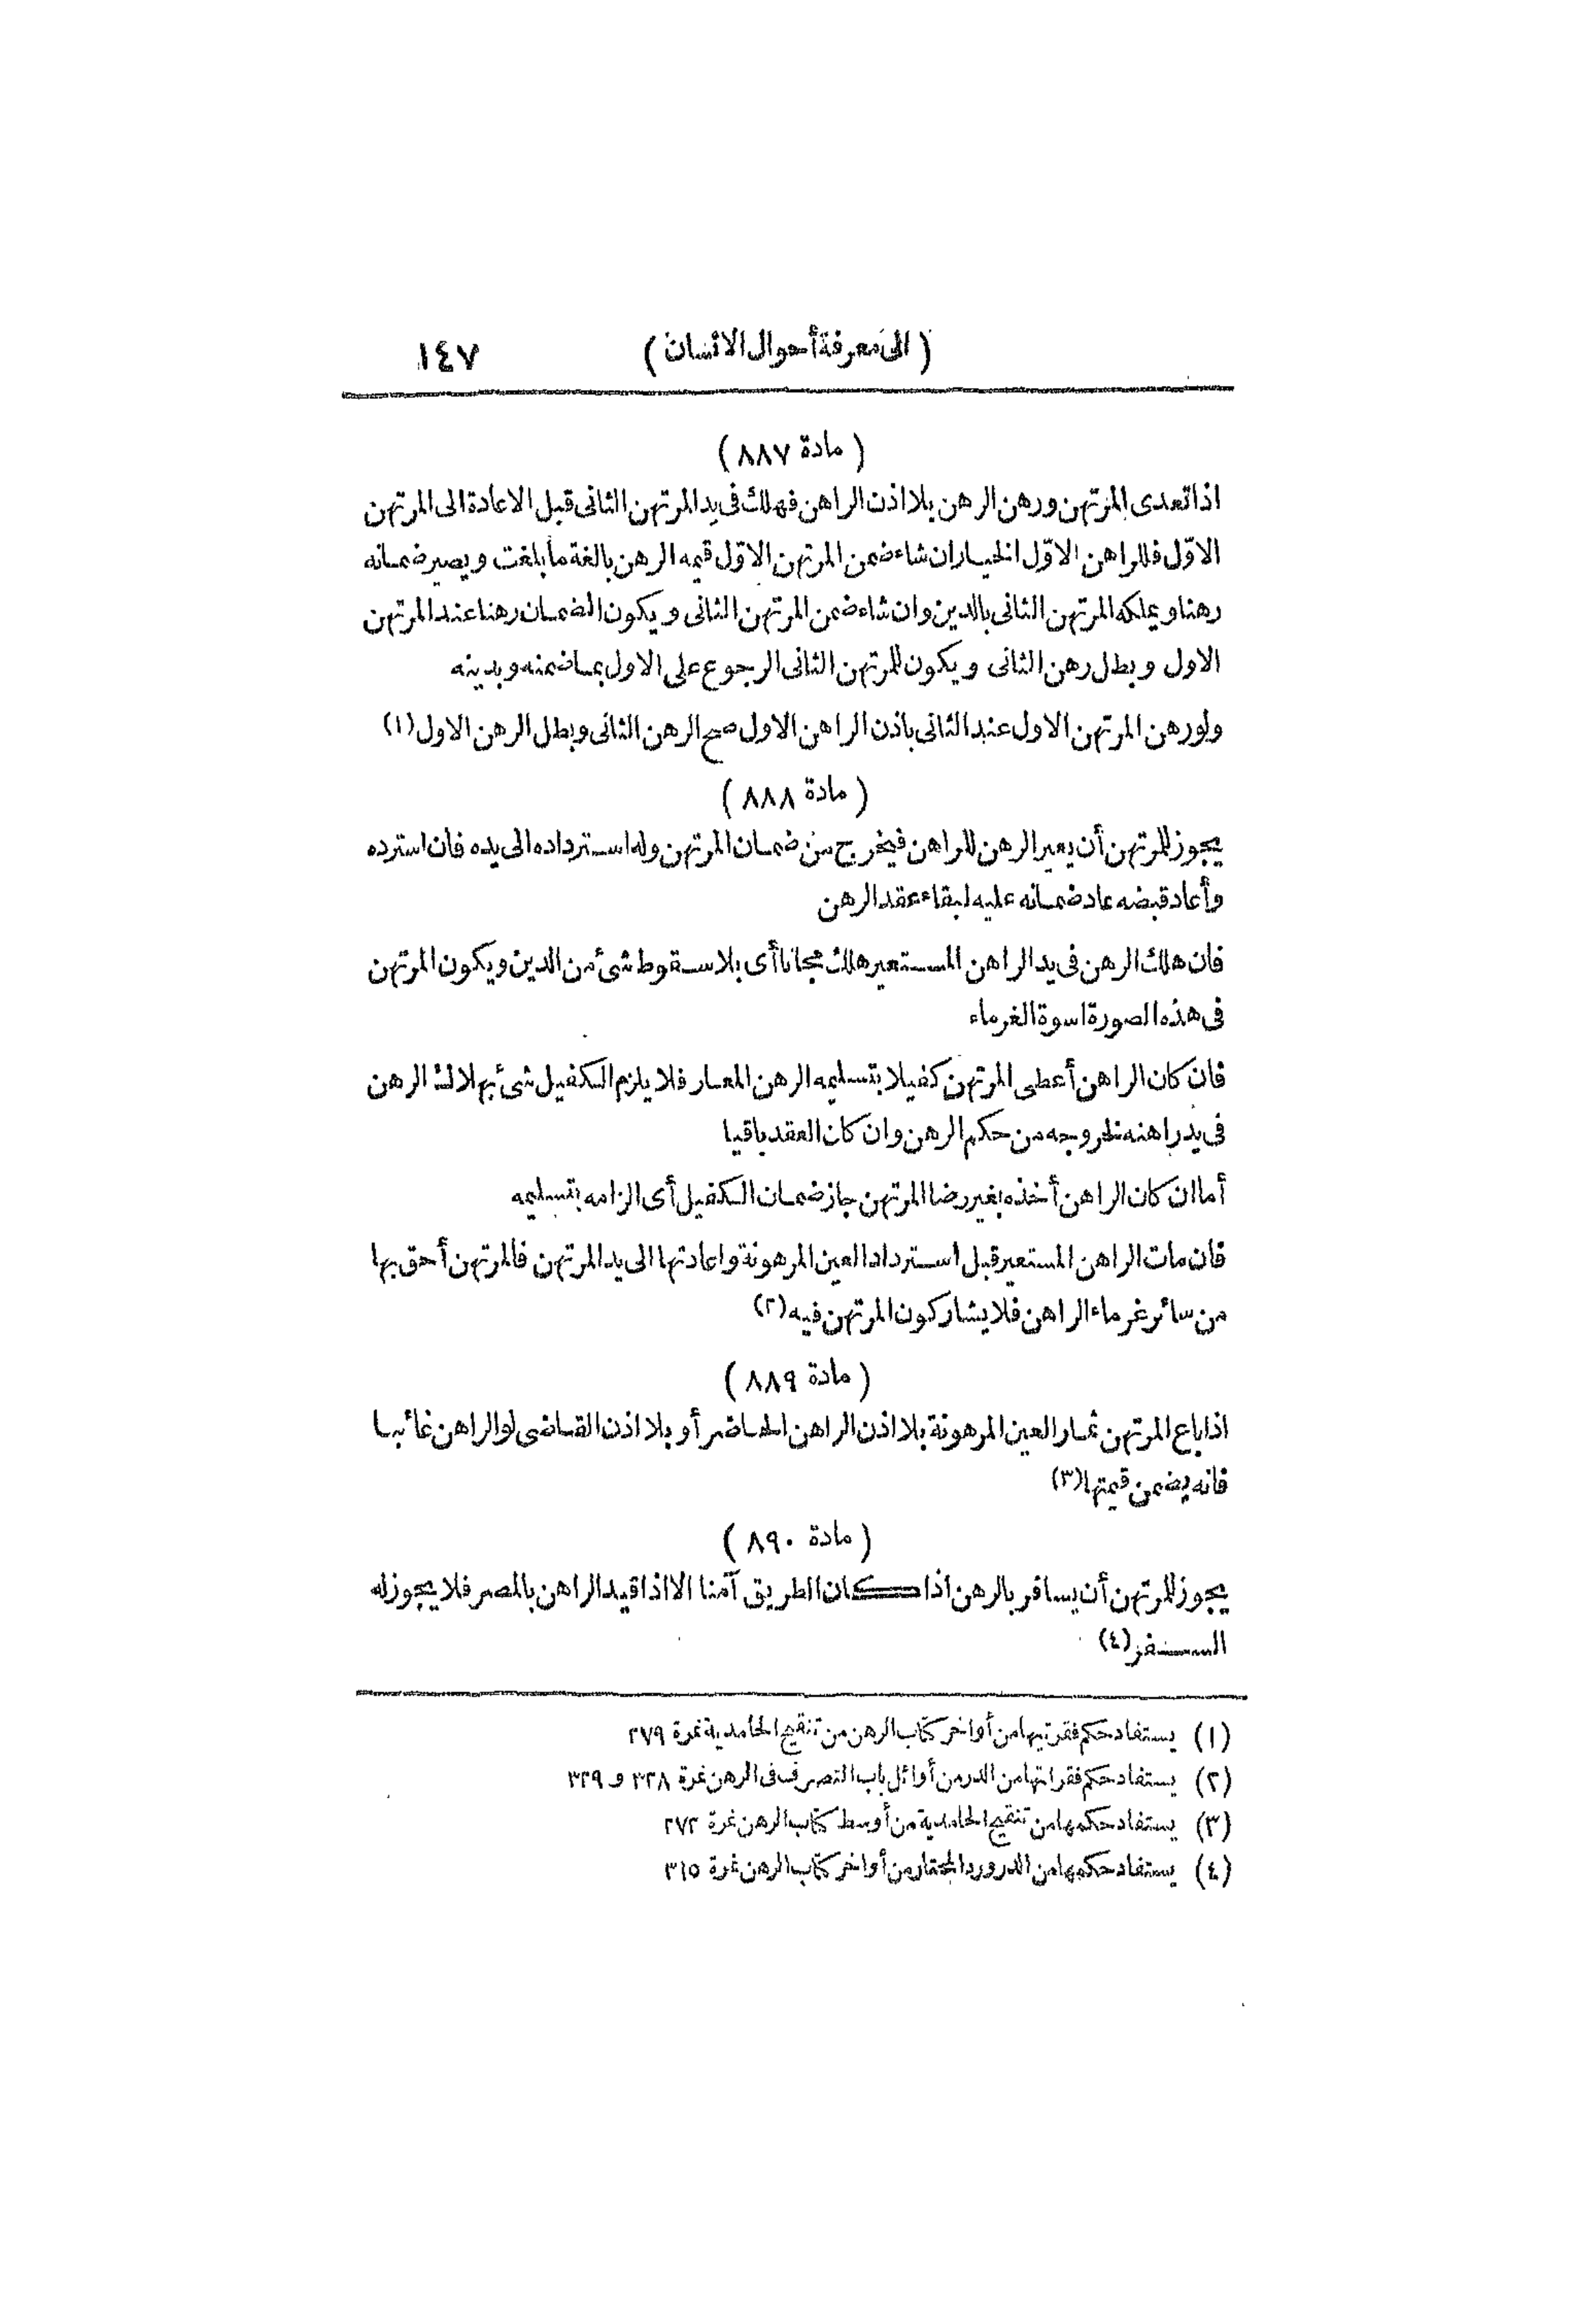 ( الى معرفة أحوال الانسان ) ١٤٧
( مادة ٨٨٧ )
اذا تعدى المرتهن ورهن الرهن بلا اذن الراهن فهلك فى يد المرتهن الثانى قبل الاعادة الى المرتهن
الاوّل فللراهن الاوّل الخيار ان شاء ضمن المرتهن الاوّل قيمه الرهن بالغة ما بلغت ويصير ضمانه
رهنا ويملكه المرتهن الثانى بالدين وان شاء ضمن المرتهن الثانى ويكون الضمان رهنا عند المرتهن
الاول وبطل رهن الثانى ويكون للمرتهن الثانى الرجوع على الاول بما ضمنه وبدينه
ولو رهن المرتهن الاول عند الثانى باذن الراهن الاول صح الرهن الثانى وبطل الرهن الاول (١)
( مادة ٨٨٨ )
يجوز للمرتهن أن يعير الرهن للراهن فيخرج من ضمان المرتهن وله استرداده الى يده فان استرده
وأعاد قبضه عاد ضمانه عليه لبقاء عقد الرهن
فان هلك الرهن فى يد الراهن المستعير هلك مجانا أى بلا سقوط شئ من الدين ويكون المرتهن
فى هذه الصورة اسوة الغرماء
فان كان الراهن أعطى المرتهن كفيلا بتسليمه الرهن المعار فلا يلزم الكفيل شئ بهلاك الرهن
فى يد راهنه لخروجه من حكم الرهن وان كان العقد باقيا
أما ان كان الراهن أخذه بغير رضا المرتهن جاز ضمان الكفيل أى الزامه بتسليمه
فان مات الراهن المستعير قبل استرداد العين المرهونة واعادتها الى يد المرتهن فالمرتهن أحق بها
من سائر غرماء الراهن فلا يشاركون المرتهن فيه (٢)
( مادة ٨٨٩ )
اذا باع المرتهن ثمار العين المرهونة بلا اذن الراهن الحاضر أو بلا اذن القاضى لو الراهن غائبا
فانه يضمن قيمتها (٣)
( مادة ٨٩٠ )
يجوز للمرتهن أن يسافر بالرهن اذا كان الطريق آمنا الا اذا قيد الراهن بالمصر فلا يجوز له
السفر (٤)
(١) يستفاد حكم فقرتيها من أواخر كتاب الرهن من تنقيح الحامدية نمرة ٢٧٩
(٢) يستفاد حكم فقراتها من الدر من أوائل باب التصرف فى الرهن نمرة ٣٢٨ و ٣٢٩
(٣) يستفاد حكمها من تنقيح الحامدية من أوسط كتاب الرهن نمرة ٢٧٢
(٤) يستفاد حكمها من الدر ورد المحتار من أواخر كتاب الرهن نمرة ٣١٥